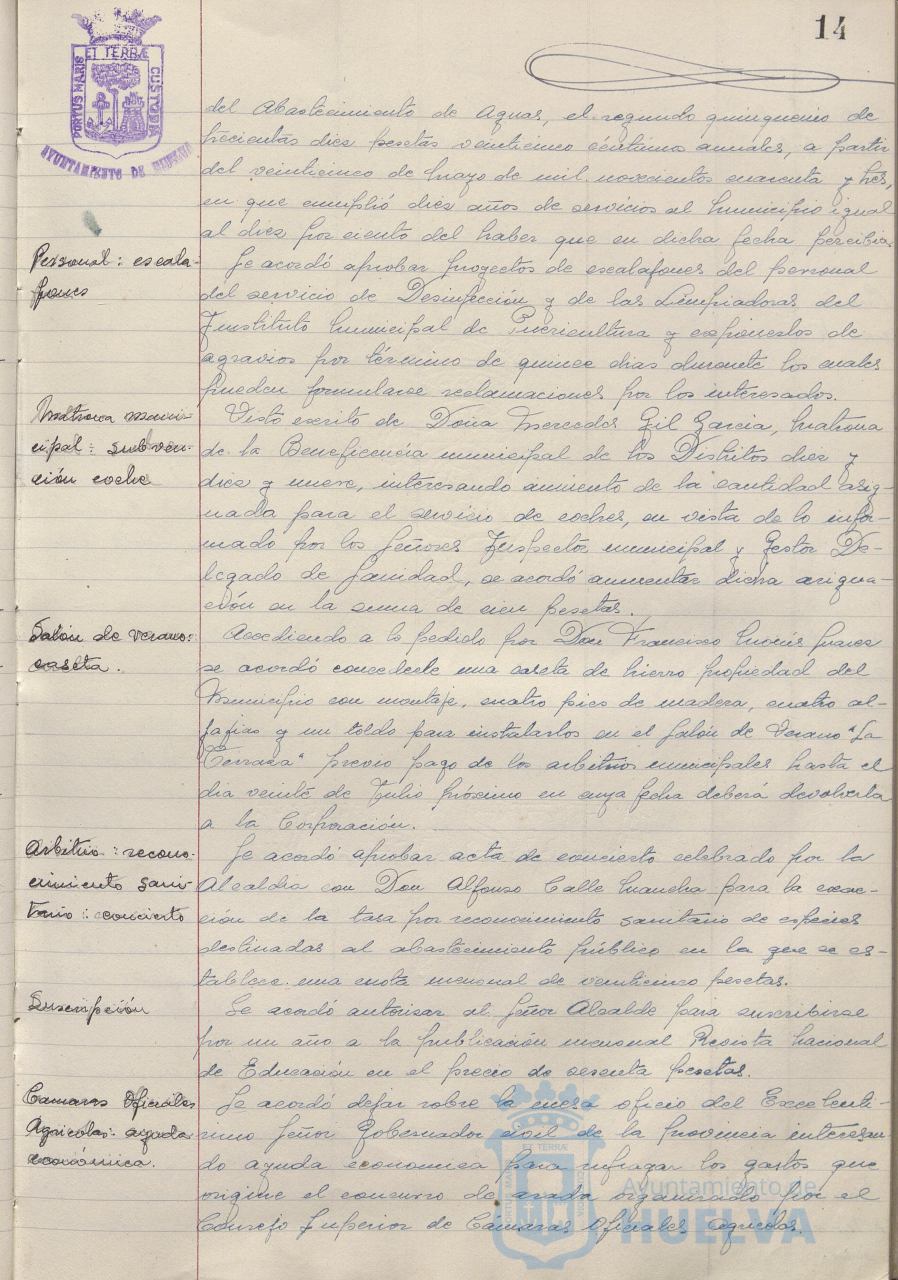 14
ET TERRÆ
PORTUS MARIS
CUSTODIA
AYUNTAMIENTO DE HUELVA
del Abastecimiento de Aguas, el segundo quinquenio de
trecientas diez pesetas veinticinco céntimos anuales, a partir
del veinticinco de Mayo de mil novecientos cuarenta y tres,
en que cumplió diez años de servicios al Municipio igual
al diez por ciento del haber que en dicha fecha percibia.
Personal: escala-
fones
Se acordó aprobar proyectos de escalafones del personal
del servicio de Desinfección y de las Limpiadoras del
Instituto Municipal de Puericultura y exponerlos de
agravios por término de quince dias durante los cuales
pueden formularse reclamaciones por los interesados.
Matrona muni-
cipal: subven-
ción coche
Visto escrito de Doña Mercedes Gil Garcia, Matrona
de la Beneficencia municipal de los Distritos diez y
diez y nueve, interesando aumento de la cantidad asig-
nada para el servicio de coches, en vista de lo infor-
mado por los Señores Inspector municipal y Gestor De-
legado de Sanidad, se acordó aumentar dicha asigna-
ción en la suma de cien pesetas.
Salón de verano:
caseta.
Accediendo a lo pedido por Don Francisco
se acordó concederle una caseta de hierro propiedad del
Municipio con montaje, cuatro pies de madera, cuatro al-
fajias y un toldo para instalarlos en el Salón de Verano "La
Terraza" previo pago de los arbitrios municipales hasta el
dia veinte de Julio próximo en cuya fecha deberá devolverla
a la Corporación.
Arbitrio: recono-
cimiento sani-
tario: concierto
Se acordó aprobar acta de concierto celebrado por la
Alcaldia con Don Alfonso Calle Mancha para la exac-
ción de la tasa por reconocimiento sanitario de especies
destinadas al abastecimiento público en la que se es-
tablece una cuota mensual de veinticinco pesetas.
Suscripción
Se acordó autorizar al Señor Alcalde para suscribirse
por un año a la publicación mensual Revista Nacional
de Educación en el precio de sesenta pesetas.
Camaras Oficiales
Agricolas: ayuda
económica.
Se acordó dejar sobre la mesa oficio del Excelenti-
simo Señor Gobernador civil de la provincia interesan-
do ayuda economica para sufragar los gastos que
origine el concurso de arada organizado por el
Consejo Superior de Cámaras Oficiales Agricolas.
Ayuntamiento de
HUELVA